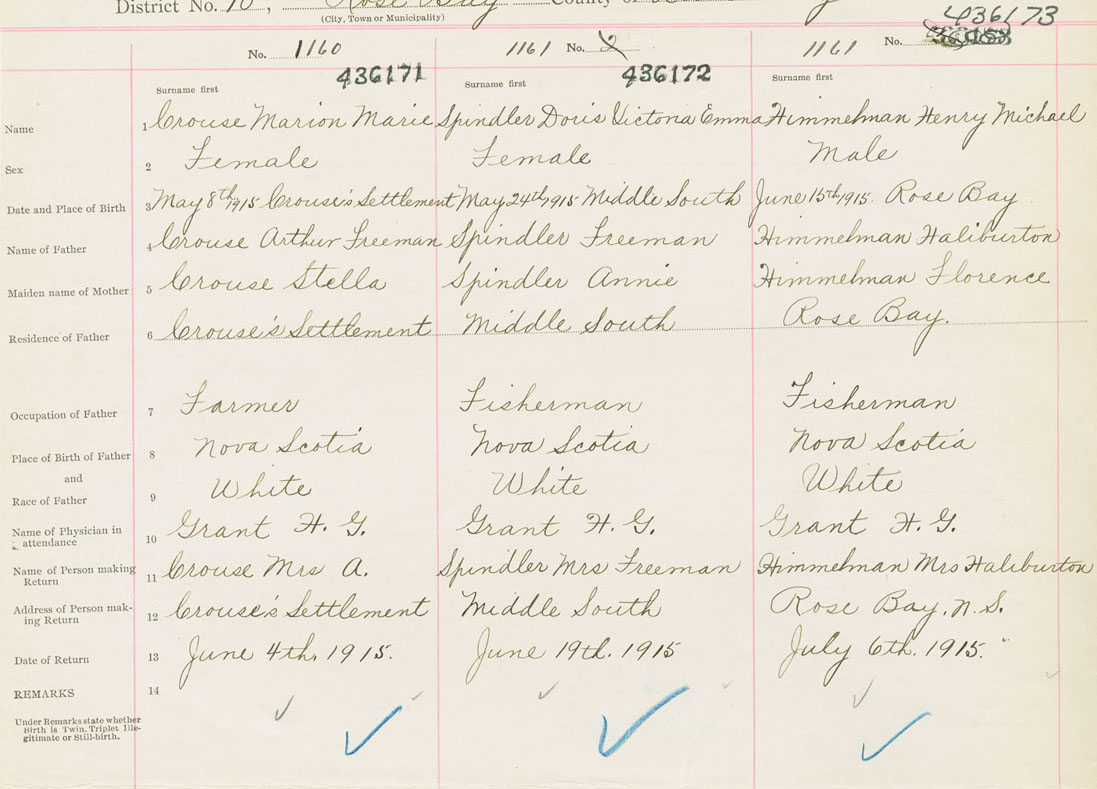 District No. 10, Rose Bay County of
(City, Town or Municipality)
436173
No. 1160 1161 No. 2 1161 No.
436171 436172
Surname first Surname first Surname first
Name 1 Crouse Marion Marie Spindler Doris Victoria Emma Himmelman Henry Michael
Sex 2 Female Female Male
Date and Place of Birth 3 May 8th 1915 Crouse's Settlement May 24th 1915 Middle South June 15th 1915. Rose Bay
Name of Father 4 Crouse Arthur Freeman Spindler Freeman Himmelman Haliburton
Maiden name of Mother 5 Crouse Stella Spindler Annie Himmelman Florence
Residence of Father 6 Crouse's Settlement Middle South Rose Bay.
Occupation of Father 7 Farmer Fisherman Fisherman
Place of Birth of Father 8 Nova Scotia Nova Scotia Nova Scotia
and
Race of Father 9 White White White
Name of Physician in
attendance 10 Grant H. G. Grant H. G. Grant H. G.
Name of Person making
Return 11 Crouse Mrs A. Spindler Mrs Freeman Himmelman Mrs Haliburton
Address of Person mak-
ing Return 12 Crouse's Settlement Middle South Rose Bay, N.S.
Date of Return 13 June 4th. 1915. June 19th. 1915 July 6th. 1915.
REMARKS 14
Under Remarks state whether
Birth is Twin, Triplet Ille-
gitimate or Still-birth.